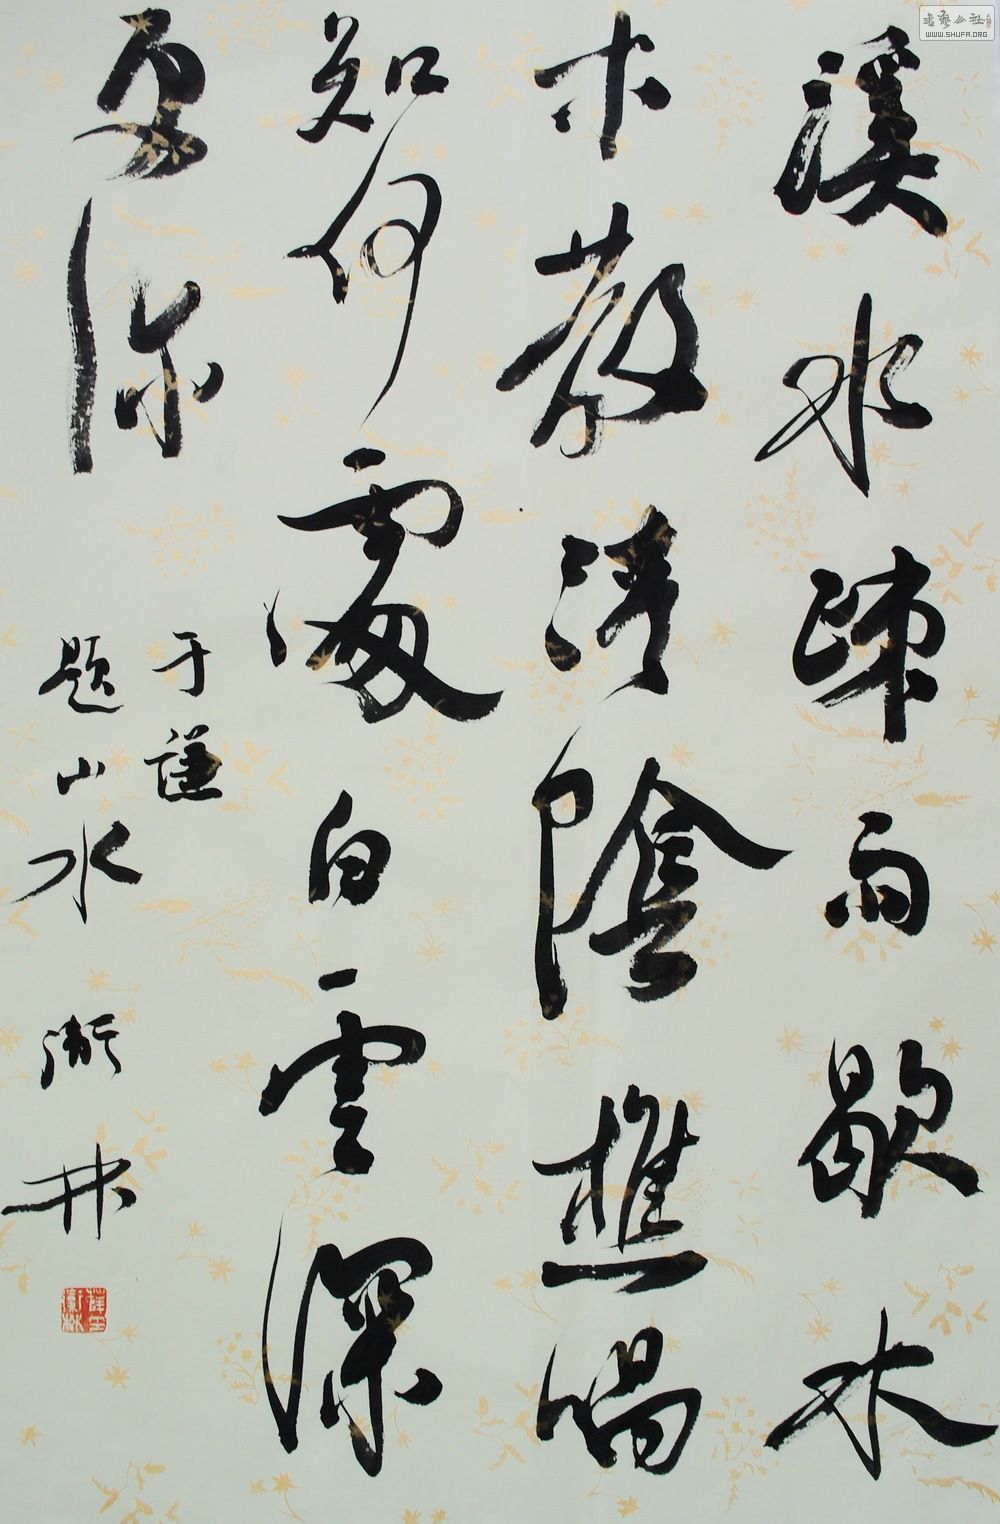 溪水疎雨歇木
末散清陰樵唱
知何處白雲深
更深
于謙
題山水 衛林
書藝公社
WWW.SHUFA.ORG